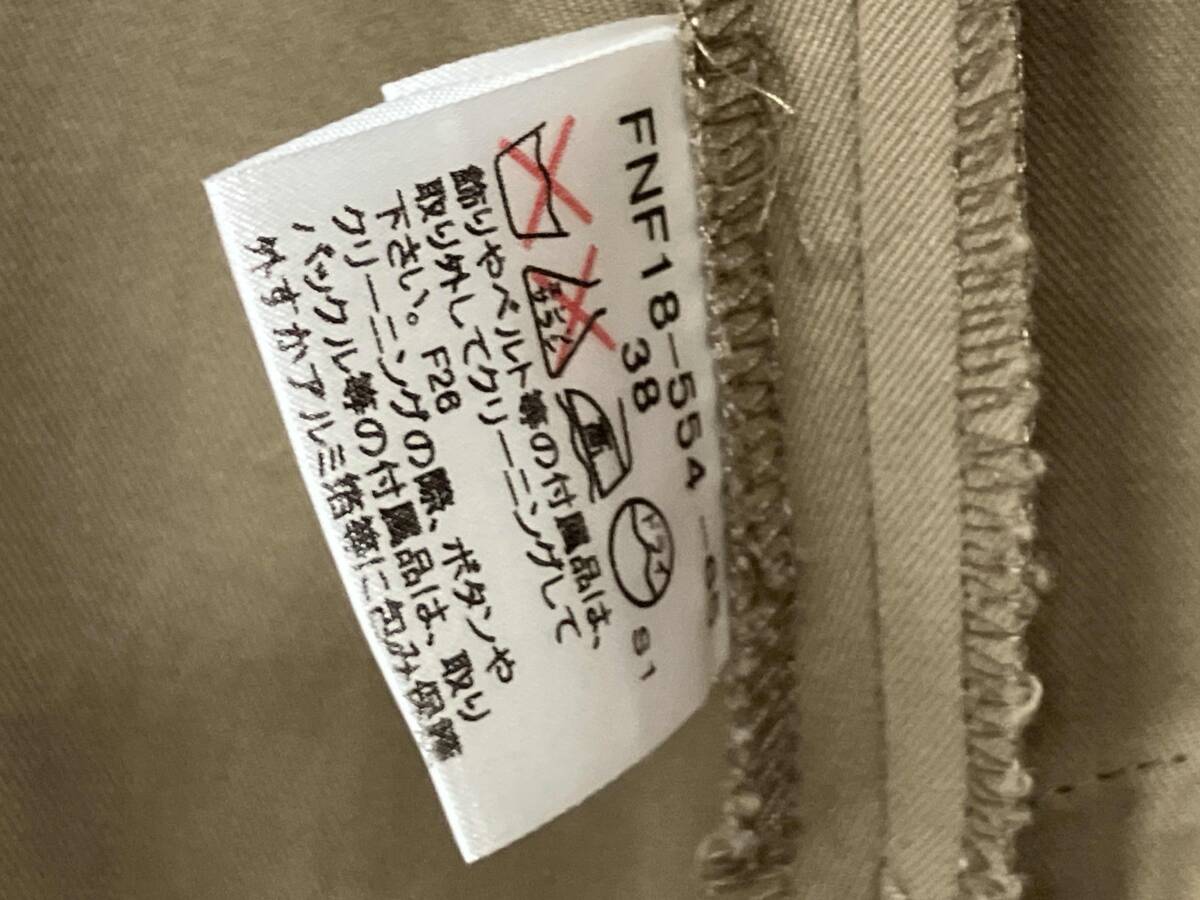 FNF18-554
38
エンソ
サラシ
中
ドライ
81
飾りやベルト等の付属品は、
取り外してクリーニングして
下さい。 F26
クリーニングの際、ボタンや
バックル等の付属品は、取り
外すかアルミ箔等に包み保護